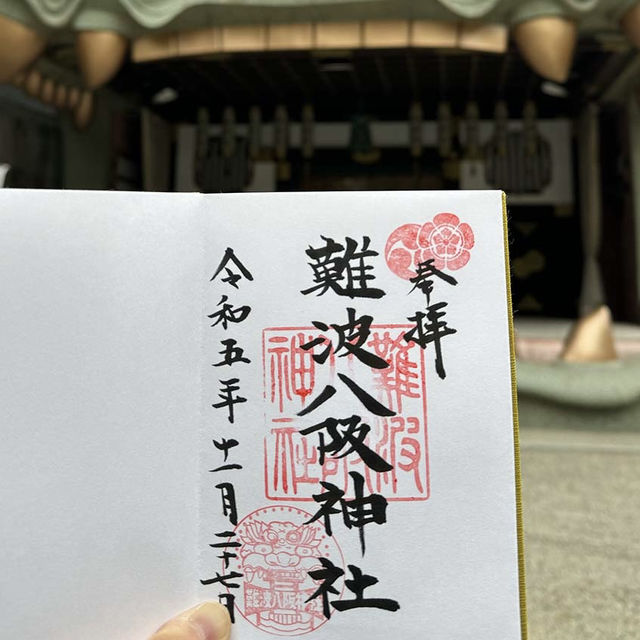 奉拝
難波八阪神社
令和五年十一月二十七日
難波
神社
難波八阪神社